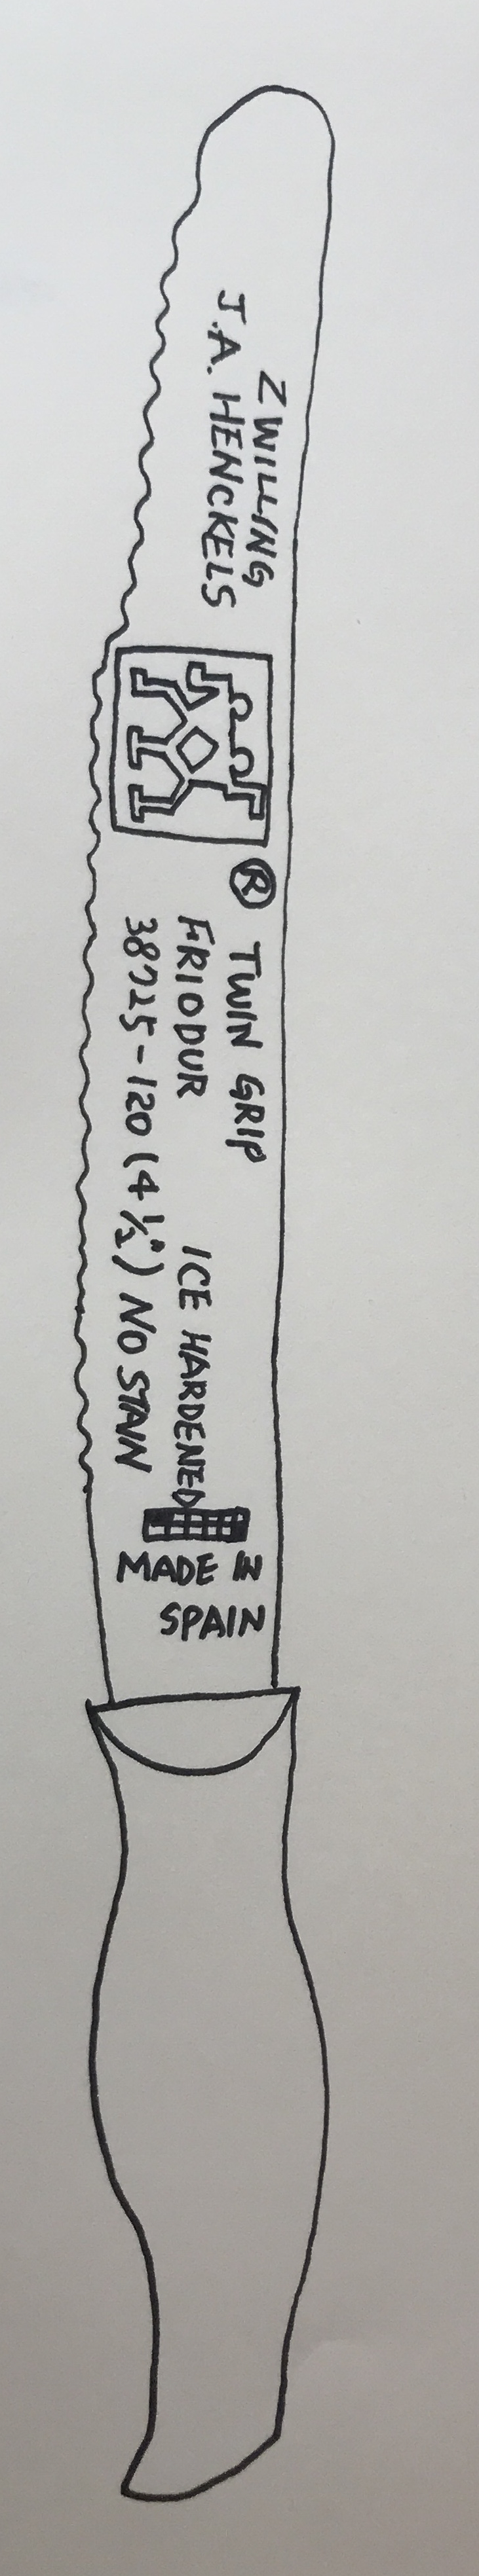 ZWILLING
J.A. HENCKELS
®
TWIN GRIP
FRIODUR ICE HARDENED
38725-120 (4 ½") NO STAIN
MADE IN
SPAIN